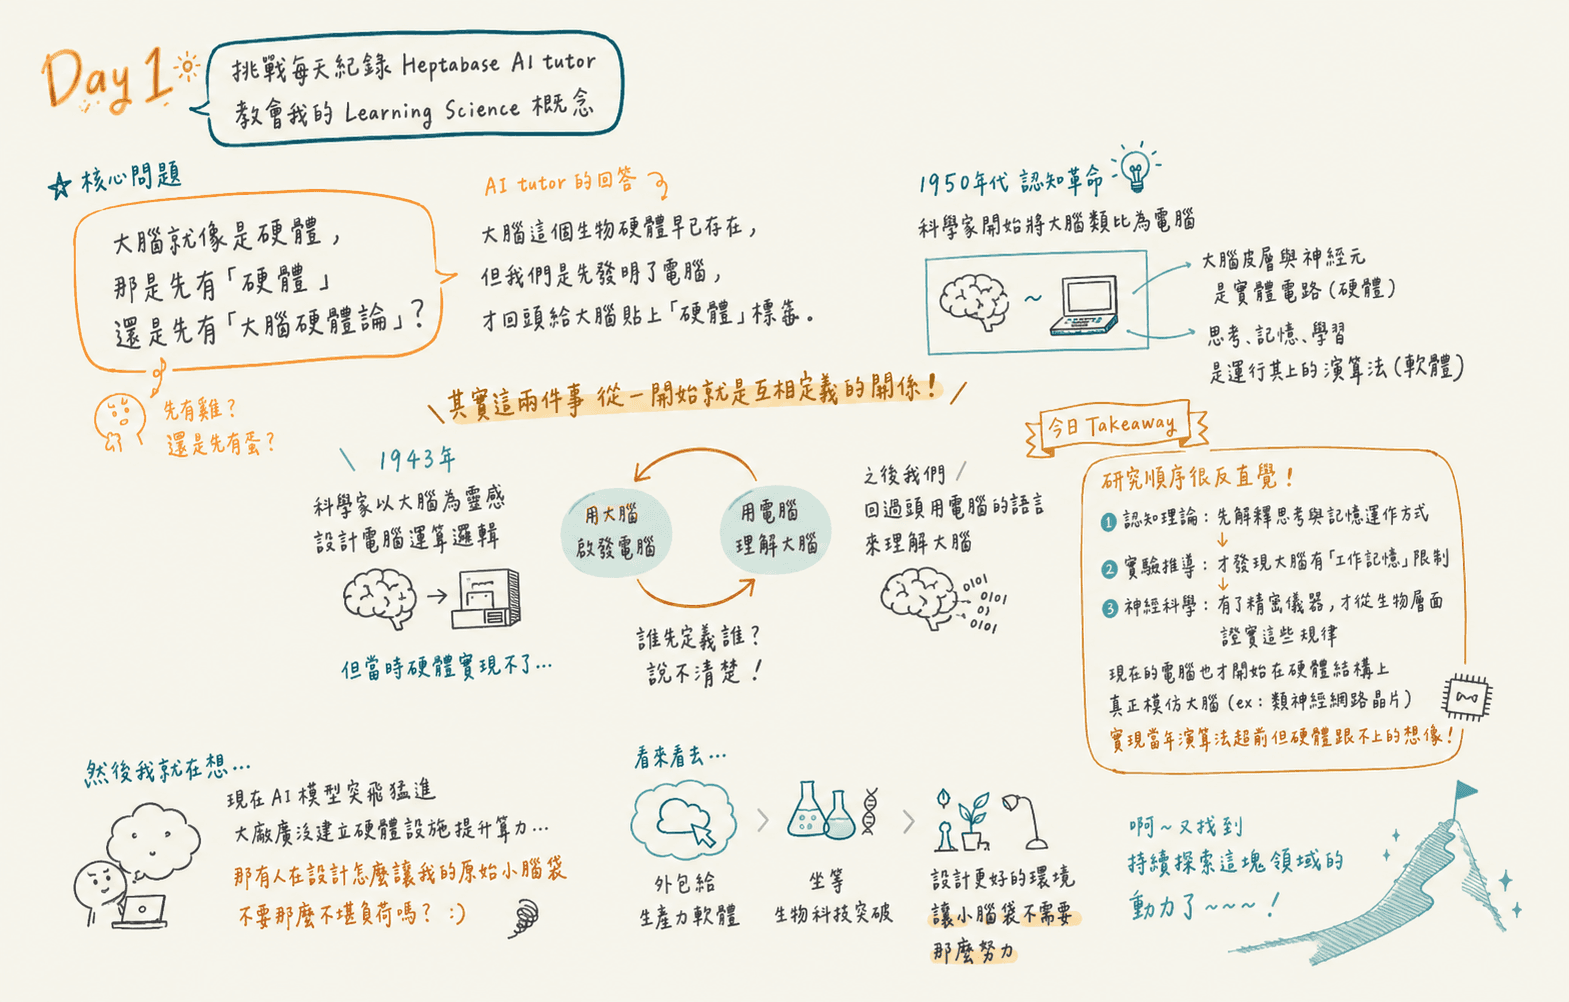 Day 1
挑戰每天紀錄 Heptabase AI tutor
教會我的 Learning Science 概念
核心問題
大腦就像是硬體，
那是先有「硬體」
還是先有「大腦硬體論」？
先有雞？
還是先有蛋？
AI tutor 的回答
大腦這個生物硬體早已存在，
但我們是先發明了電腦，
才回頭給大腦貼上「硬體」標籤。
1950年代 認知革命
科學家開始將大腦類比為電腦
~
大腦皮層與神經元
是實體電路（硬體）
思考、記憶、學習
是運行其上的演算法（軟體）
其實這兩件事 從一開始就是互相定義的關係！
1943年
科學家以大腦為靈感
設計電腦運算邏輯
但當時硬體實現不了…
用大腦
啟發電腦
用電腦
理解大腦
誰先定義誰？
說不清楚！
之後我們
回過頭用電腦的語言
來理解大腦
0101
0101
01
0101
今日 Takeaway
研究順序很反直覺！
1 認知理論：先解釋思考與記憶運作方式
2 實驗推導：才發現大腦有「工作記憶」限制
3 神經科學：有了精密儀器，才從生物層面
證實這些規律
現在的電腦也才開始在硬體結構上
真正模仿大腦（ex：類神經網路晶片）
實現當年演算法超前但硬體跟不上的想像！
然後我就在想…
現在 AI 模型突飛猛進
大廠廣泛建立硬體設施提升算力…
那有人在設計怎麼讓我的原始小腦袋
不要那麼不堪負荷嗎？ :)
看來看去…
外包給
生產力軟體
坐等
生物科技突破
設計更好的環境
讓小腦袋不需要
那麼努力
啊~又找到
持續探索這塊領域的
動力了~~~！